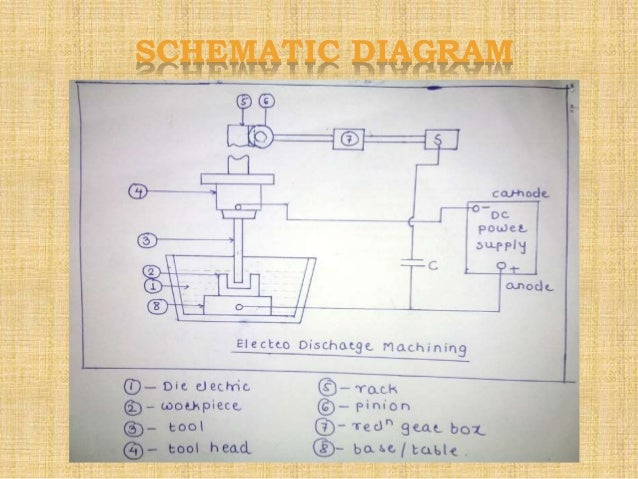 SCHEMATIC DIAGRAM
5 6
7 S
4
cathode
- DC
power
supply
3
+
C
anode
2
1
8
Electro Discharge Machining
1 – Die electric
2 – workpiece
3 – tool
4 – tool head
5 – rack
6 – pinion
7 – redⁿ gear box
8 – base/table.